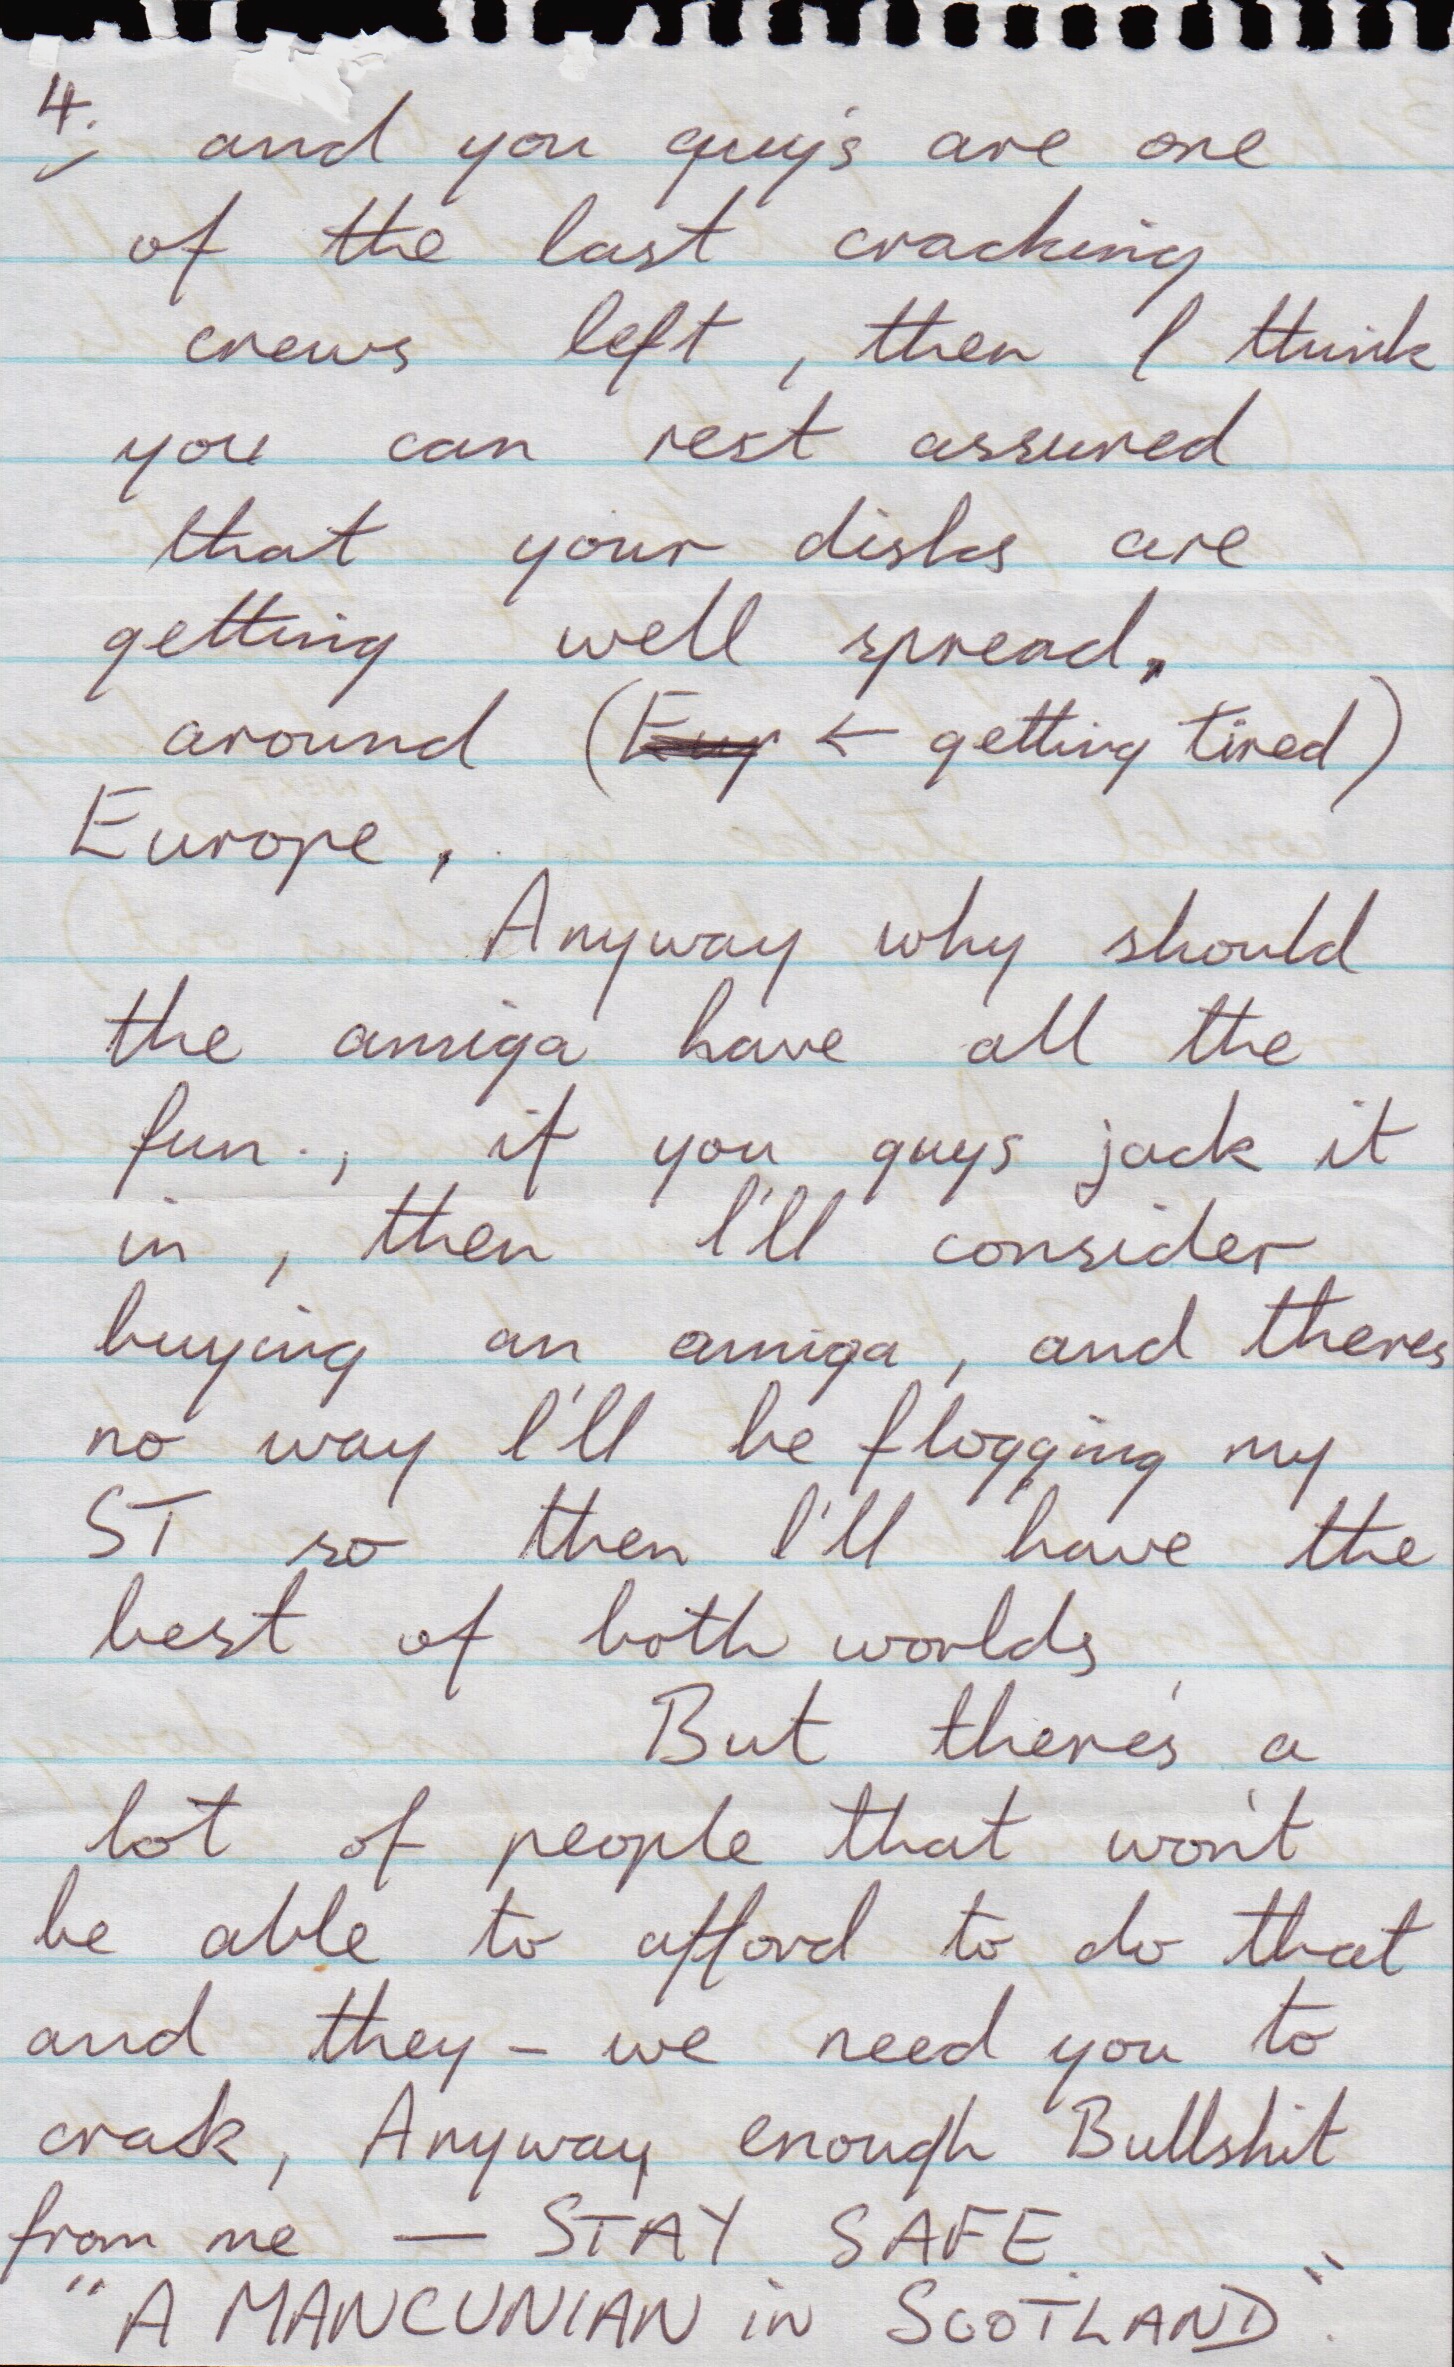 4. and you guy's are one
of the last cracking
crews left, then I think
you can rest assured
that your disks are
getting well spread.
around (Eur ← getting tired)
Europe.
Anyway why should
the amiga have all the
fun., if you guys jack it
in, then I'll consider
buying an amiga, and theres
no way I'll be flogging my
ST so then I'll have the
best of both worlds
But there's a
lot of people that won't
be able to afford to do that
and they - we need you to
crack, Anyway enough Bullshit
from me — STAY SAFE.
"A MANCUNIAN in SCOTLAND".